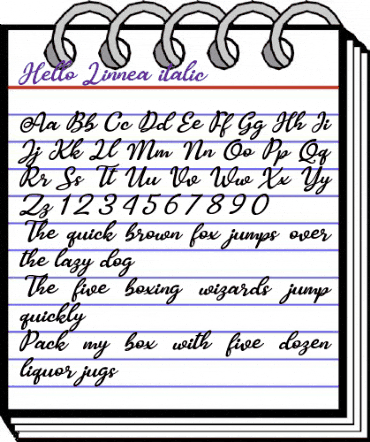 Hello Linnea italic
Aa Bb Cc Dd Ee Ff Gg Hh Ii
Jj Kk Ll Mm Nn Oo Pp Qq
Rr Ss Tt Uu Vv Ww Xx Yy
Zz 1 2 3 4 5 6 7 8 9 0
The quick brown fox jumps over
the lazy dog
The five boxing wizards jump
quickly
Pack my box with five dozen
liquor jugs